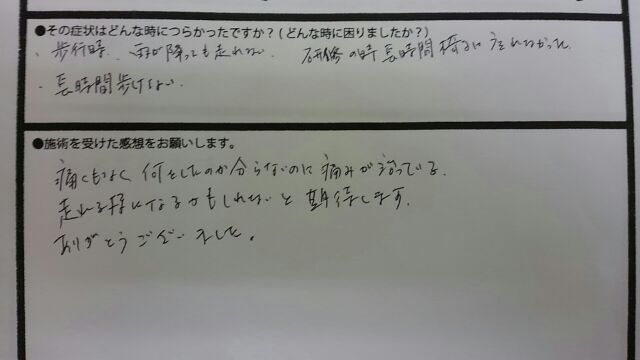 ●その症状はどんな時につらかったですか？(どんな時に困りましたか？)
・歩行時、雨が降っても走れない 研修の時長時間椅子に座れなかった
・長時間歩けない.
●施術を受けた感想をお願いします。
痛くもなく何をしたのか分らないのに痛みが減っている.
走れる様になるかもしれないと期待します.
ありがとうございました.